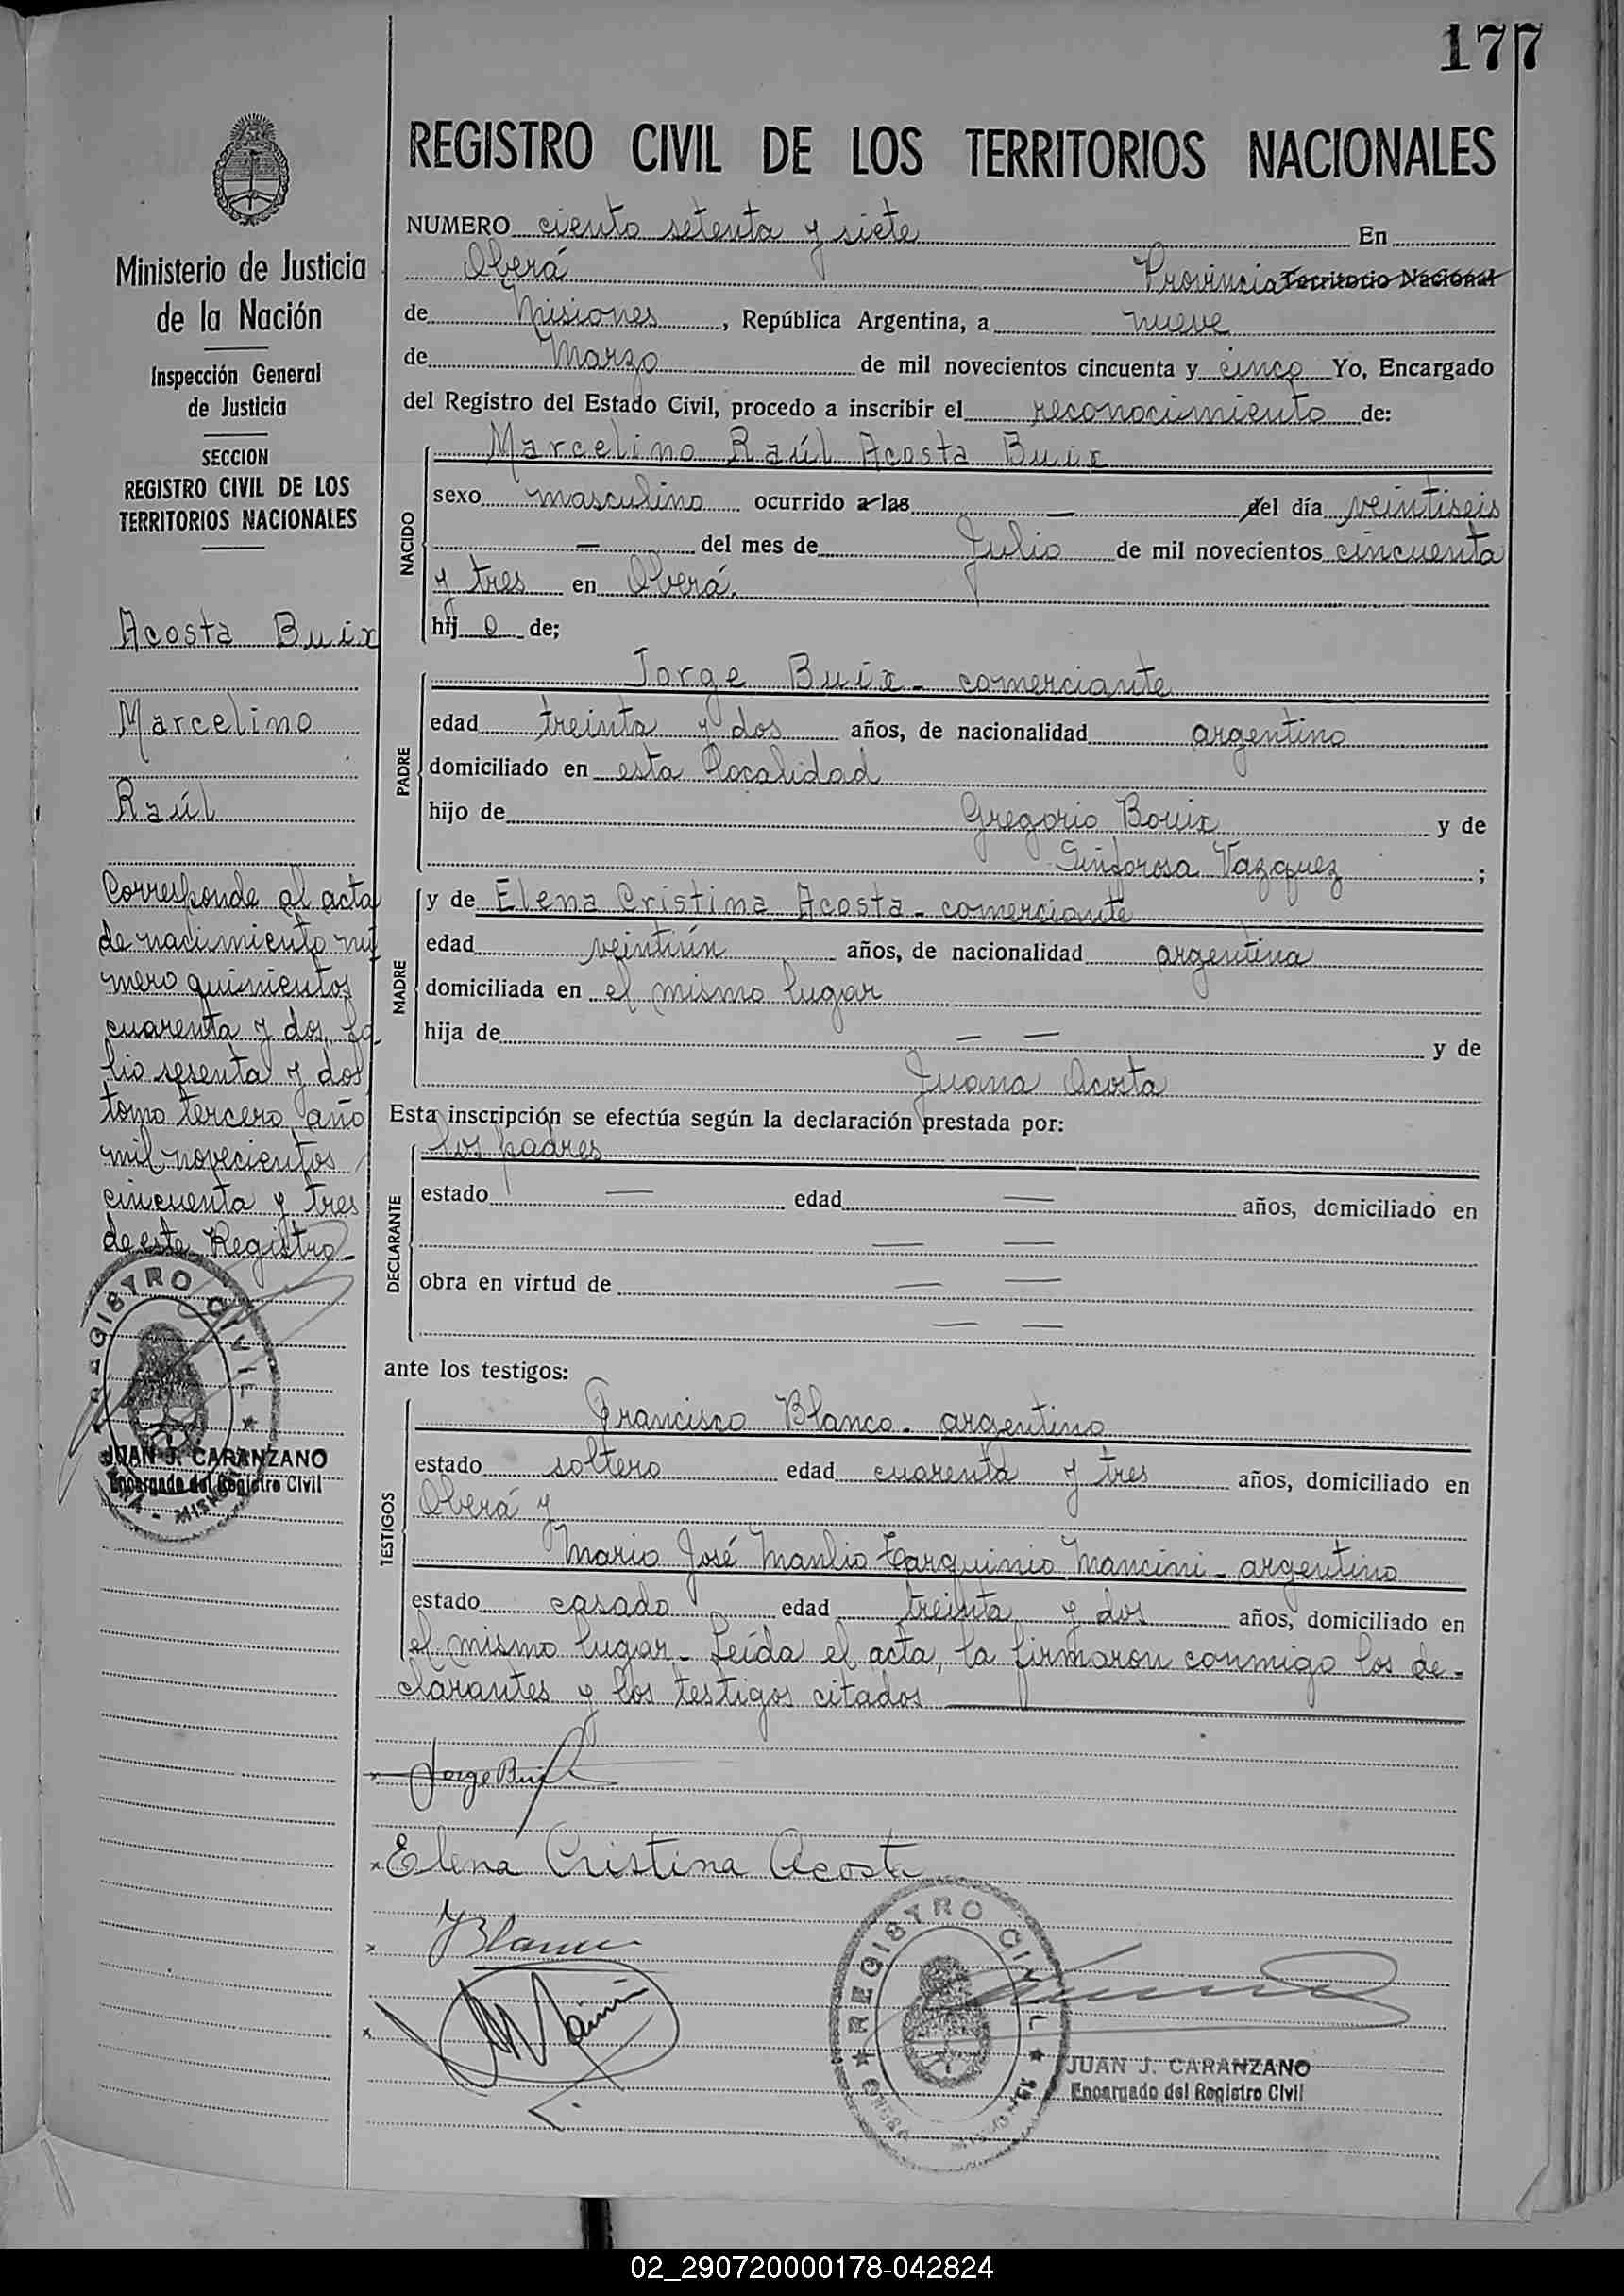 177
REGISTRO CIVIL DE LOS TERRITORIOS NACIONALES
NUMERO ciento setenta y siete En
Oberá Provincia Territorio Nacional
de Misiones, República Argentina, a nueve
de Marzo de mil novecientos cincuenta y cinco Yo, Encargado
del Registro del Estado Civil, procedo a inscribir el reconocimiento de:
NACIDO
Marcelino Raúl Acosta Buix
sexo masculino ocurrido a las — del día veintiseis
— del mes de Julio de mil novecientos cincuenta
y tres en Oberá.
hij o de;
PADRE
Jorge Buix - comerciante
edad treinta y dos años, de nacionalidad argentino
domiciliado en esta localidad
hijo de Gregorio Bouix y de
Sinforosa Vazquez ;
MADRE
y de Elena Cristina Acosta - comerciante
edad veintiún años, de nacionalidad argentina
domiciliada en el mismo lugar
hija de — — y de
Juana Acosta
Esta inscripción se efectúa según la declaración prestada por:
DECLARANTE
los padres
estado — edad — años, domiciliado en
— —
obra en virtud de — —
— —
ante los testigos:
TESTIGOS
Francisco Blanco - argentino
estado soltero edad cuarenta y tres años, domiciliado en
Oberá y
Mario José Manlio Tarquinio Mancini - argentino
estado casado edad treinta y dos años, domiciliado en
el mismo lugar - Leída el acta, la firmaron conmigo los de-
clarantes y los testigos citados
Jorge Buix
Elena Cristina Acosta
Blanco
REGISTRO CIVIL
JUAN J. CARANZANO
Encargado del Registro Civil
Ministerio de Justicia
de la Nación
Inspección General
de Justicia
SECCION
REGISTRO CIVIL DE LOS
TERRITORIOS NACIONALES
Acosta Buix
Marcelino
Raúl
Corresponde al acta
de nacimiento nú
mero quinientos
cuarenta y dos, fo-
lio sesenta y dos
tomo tercero año
mil novecientos
cincuenta y tres
de este Registro-
REGISTRO CIVIL
MISIONES
JUAN J. CARANZANO
Encargado del Registro Civil
02_290720000178-042824